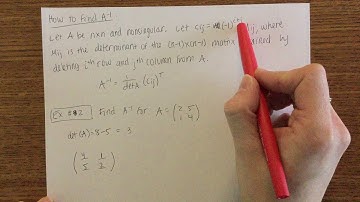 How to Find A⁻¹
Let A be n×n and nonsingular. Let cij = (-1)ⁱ⁺ʲ Mij, where
Mij is the determinant of the (n-1)×(n-1) matrix by
deleting iᵗʰ row and jᵗʰ column from A.
A⁻¹ = 1/det A (cij)ᵀ
Ex #2 Find A⁻¹ for A = (2 5
1 4)
det(A) = 8-5 = 3
(4 1
5 2)